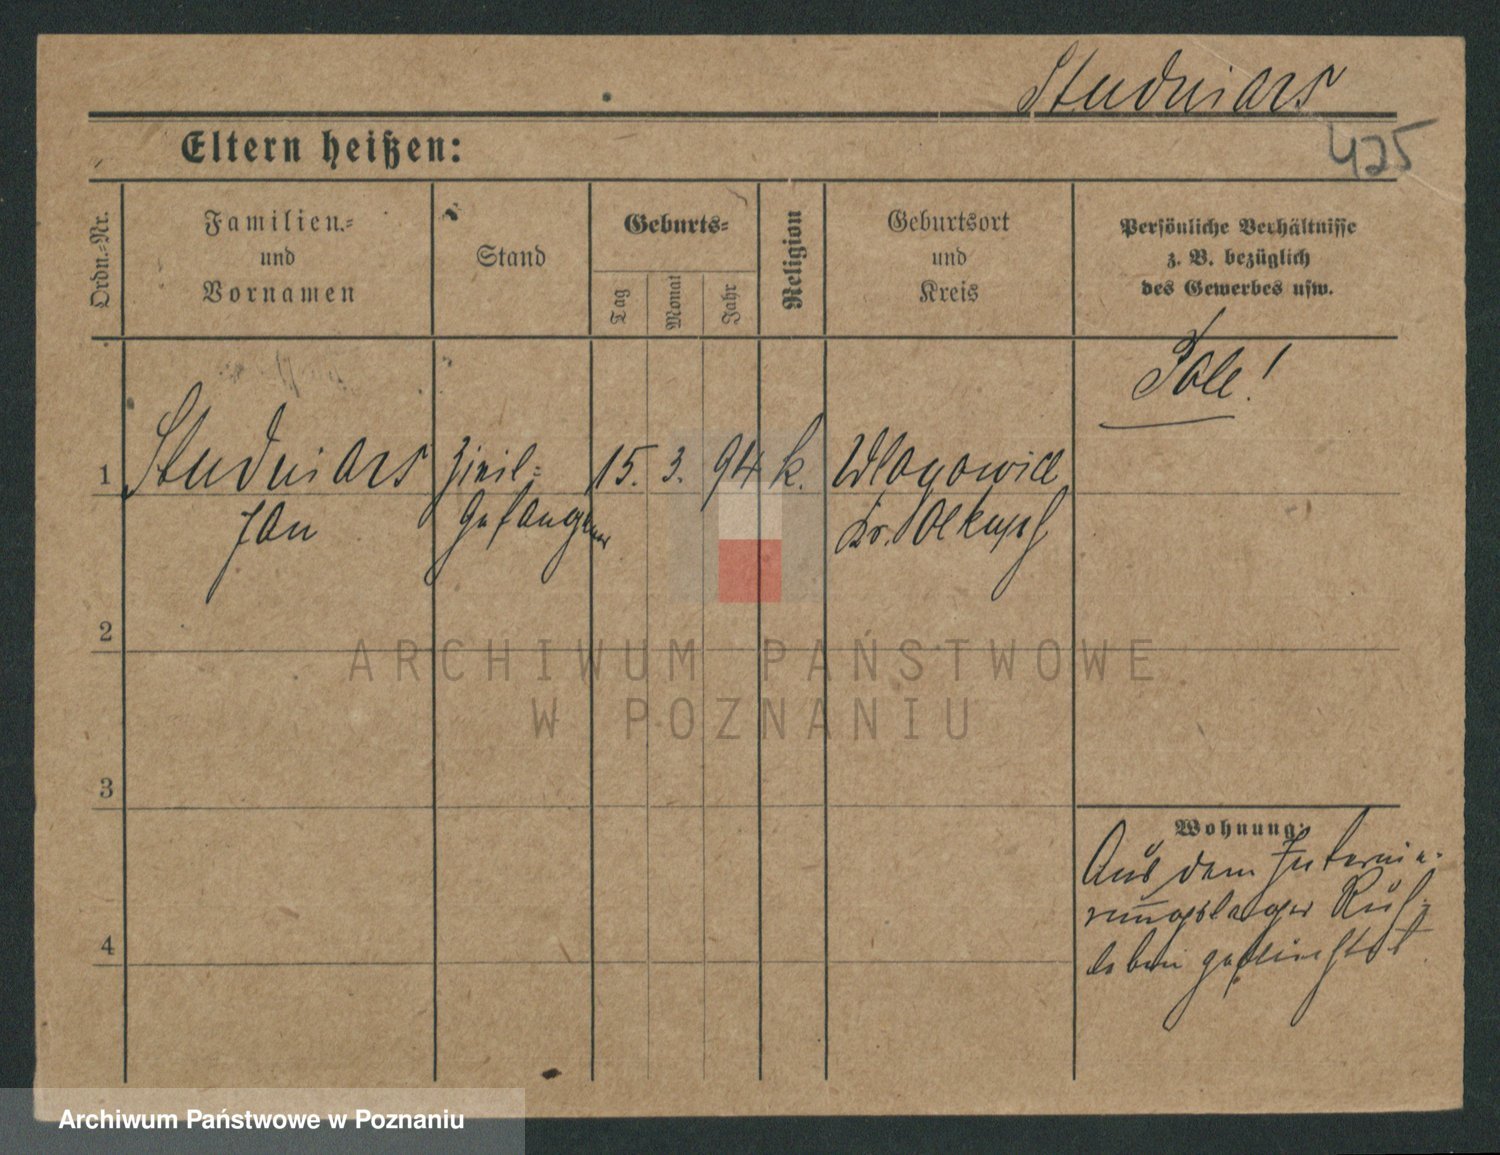 Studniars
425
Eltern heißen:
Ordn.-Nr.
Familien-
und
Vornamen
Stand
Geburts-
Tag
Monat
Jahr
Religion
Geburtsort
und
Kreis
Persönliche Verhältnisse
z. B. bezüglich
des Gewerbes usw.
Pole!
1 Studniars Zivil- 15. 3. 94 k.
Jan Gefangener Kr. Olkusch
2
ARCHIWUM PAŃSTWOWE
W POZNANIU
3
Wohnung:
Aus dem Internie-
rungslager Ruh-
leben geflüchtet.
4
Archiwum Państwowe w Poznaniu